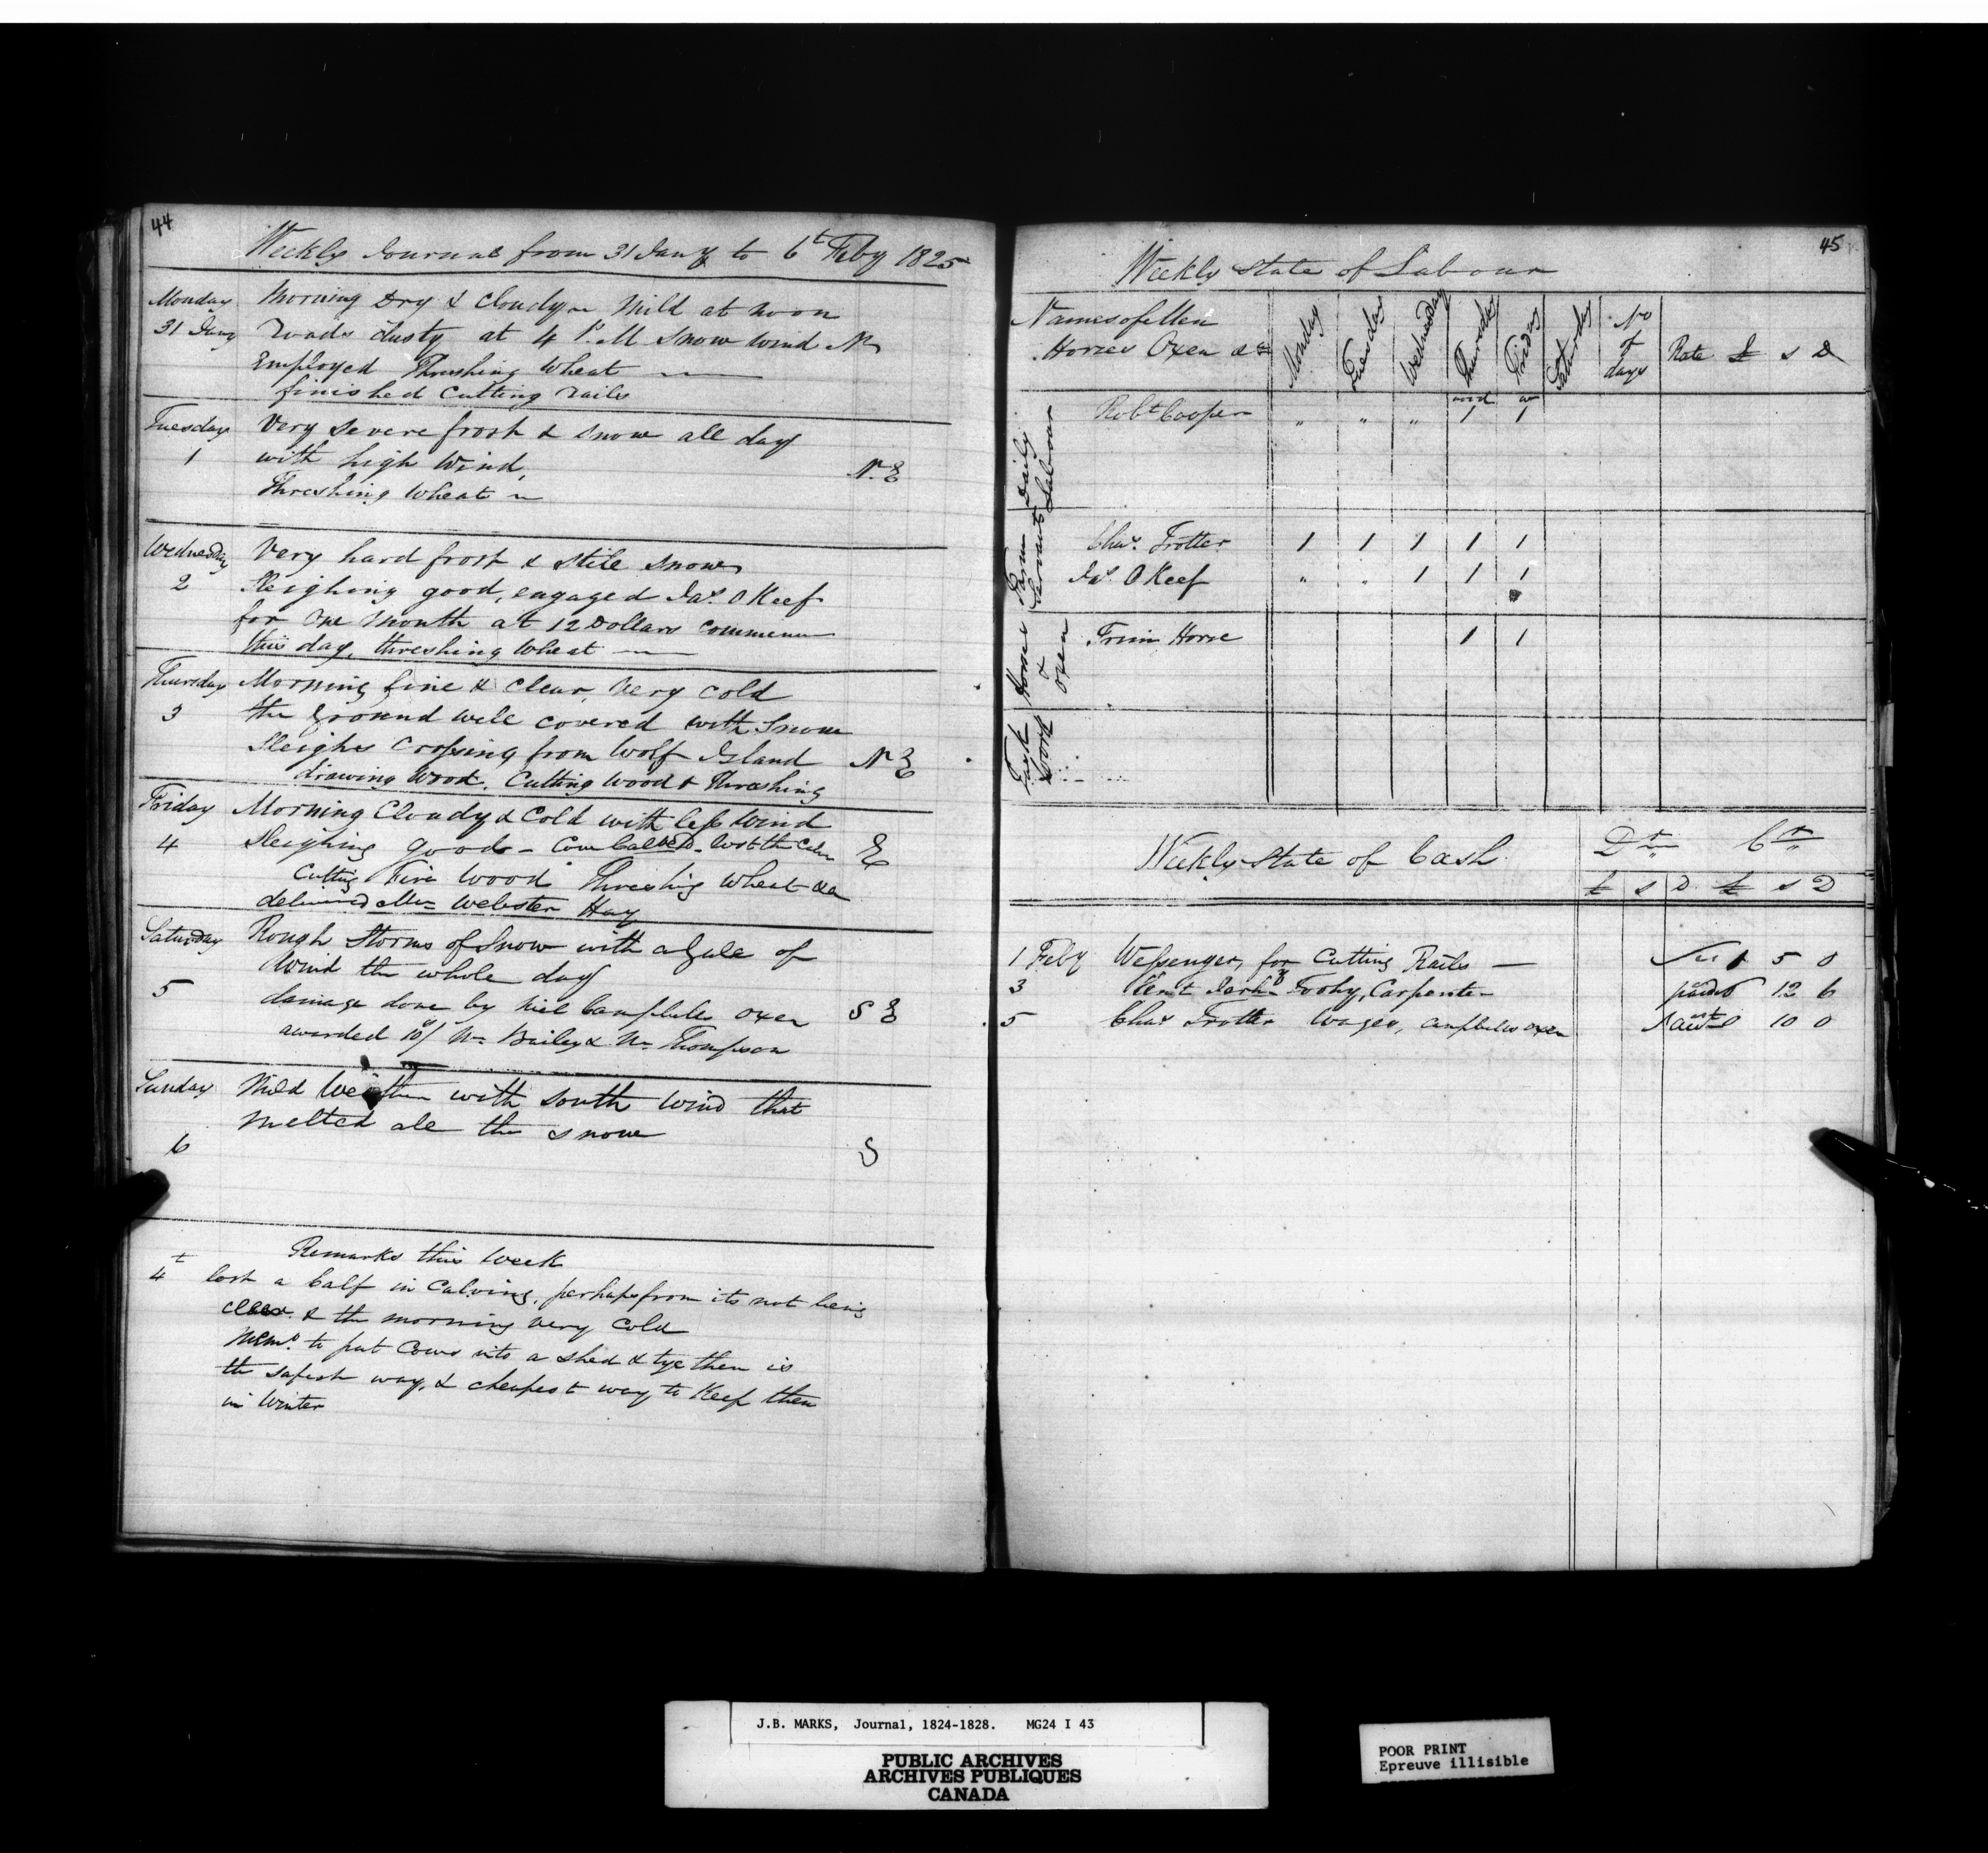 44
Weekly Journal from 31 Jany to 6t Feby 1825
Monday Morning Dry & Cloudy ~ Mild at noon
31 Jany roads dusty at 4 P.M snow wind N
Employed Thrashing Wheat
finished Cutting rails
Tuesday Very severe frost & snow all day
1 with high Wind, N.E
Threshing Wheat ~
Wednesday Very hard frost & still snow
2 Sleighing good, engaged Jas. O Keef
for one Month at 12 Dollars commenc
this day, threshing Wheat
Thursday Morning fine & clear, very cold
3 the ground well covered with Snow
Sleighs Crossing from Wolf Island N E
drawing Wood, Cutting Wood & Thrashing
Friday Morning Cloudy & Cold with less Wind
4 Sleighing good - Cow Calved - lost the Calf E
Cutting Fire Wood Threshing Wheat &c
delivered Mr Webster Hay
Saturday Rough Storms of Snow with a Gale of
Wind the whole day
5 damage done by Niel Campbells Oxen S E
awarded 10/ Wm Bailey & Wm Thompson
Sunday Mild Weather with South Wind that
melted all the snow
6 S
Remarks this Week
4t lost a Calf in Calving, perhaps from its not being
& the morning very Cold
Memo. to put Cows into a shed & tye them is
the safest way, & cheapest way to Keep them
in Winter
45
Weekly State of Labour
Names of Men
Horses Oxen &c
Monday
Tuesday
Wednesday
Thursday
Friday
Saturday
No of days
Rate £ s D
Daily Labour
Robt Cooper " " " 1 1
Farm Servants
Chas. Trotter 1 1 1 1 1
Jas. O Keef " " 1 1 1
Horse & Oxen
Trim Horse 1 1
Task Work
Weekly State of Cash
Dr Cr
£ s D £ s D
1 Feby Wessenger, for Cutting Rails — 5 0
3 Toohy, Carpenter 12 6
5 Chas Trotter Wages, Campbells oxen 10 0
J.B. MARKS, Journal, 1824-1828. MG24 I 43
PUBLIC ARCHIVES
ARCHIVES PUBLIQUES
CANADA
POOR PRINT
Epreuve illisible